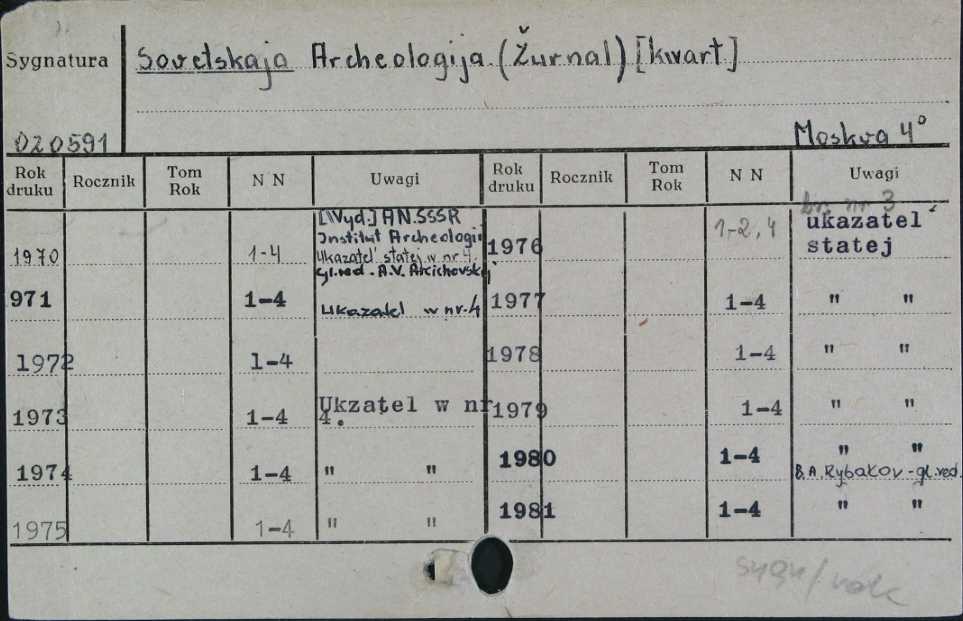 Sygnatura
Sovetskaja Archeologija (Žurnal) [kwart]
020591
Moskva 4°
Rok druku Rocznik Tom Rok N N Uwagi Rok druku Rocznik Tom Rok N N Uwagi
1970 1-4 [Wyd.] AN.SSSR
Institut Archeologii
Ukazatel' statej w nr 4.
gl.red. A.V. Arcichovskij
971 1-4 Ukazatel w nr. 4
1972 1-4
1973 1-4 Ukzatel w nr
4.
1974 1-4 " "
1975 1-4 " "
1976 1-2, 4 brn nr 3
ukazatel'
statej
1977 1-4 " "
1978 1-4 " "
1979 1-4 " "
1980 1-4 " "
B.A. Rybakov - gl.red.
1981 1-4 " "
sygn/rok